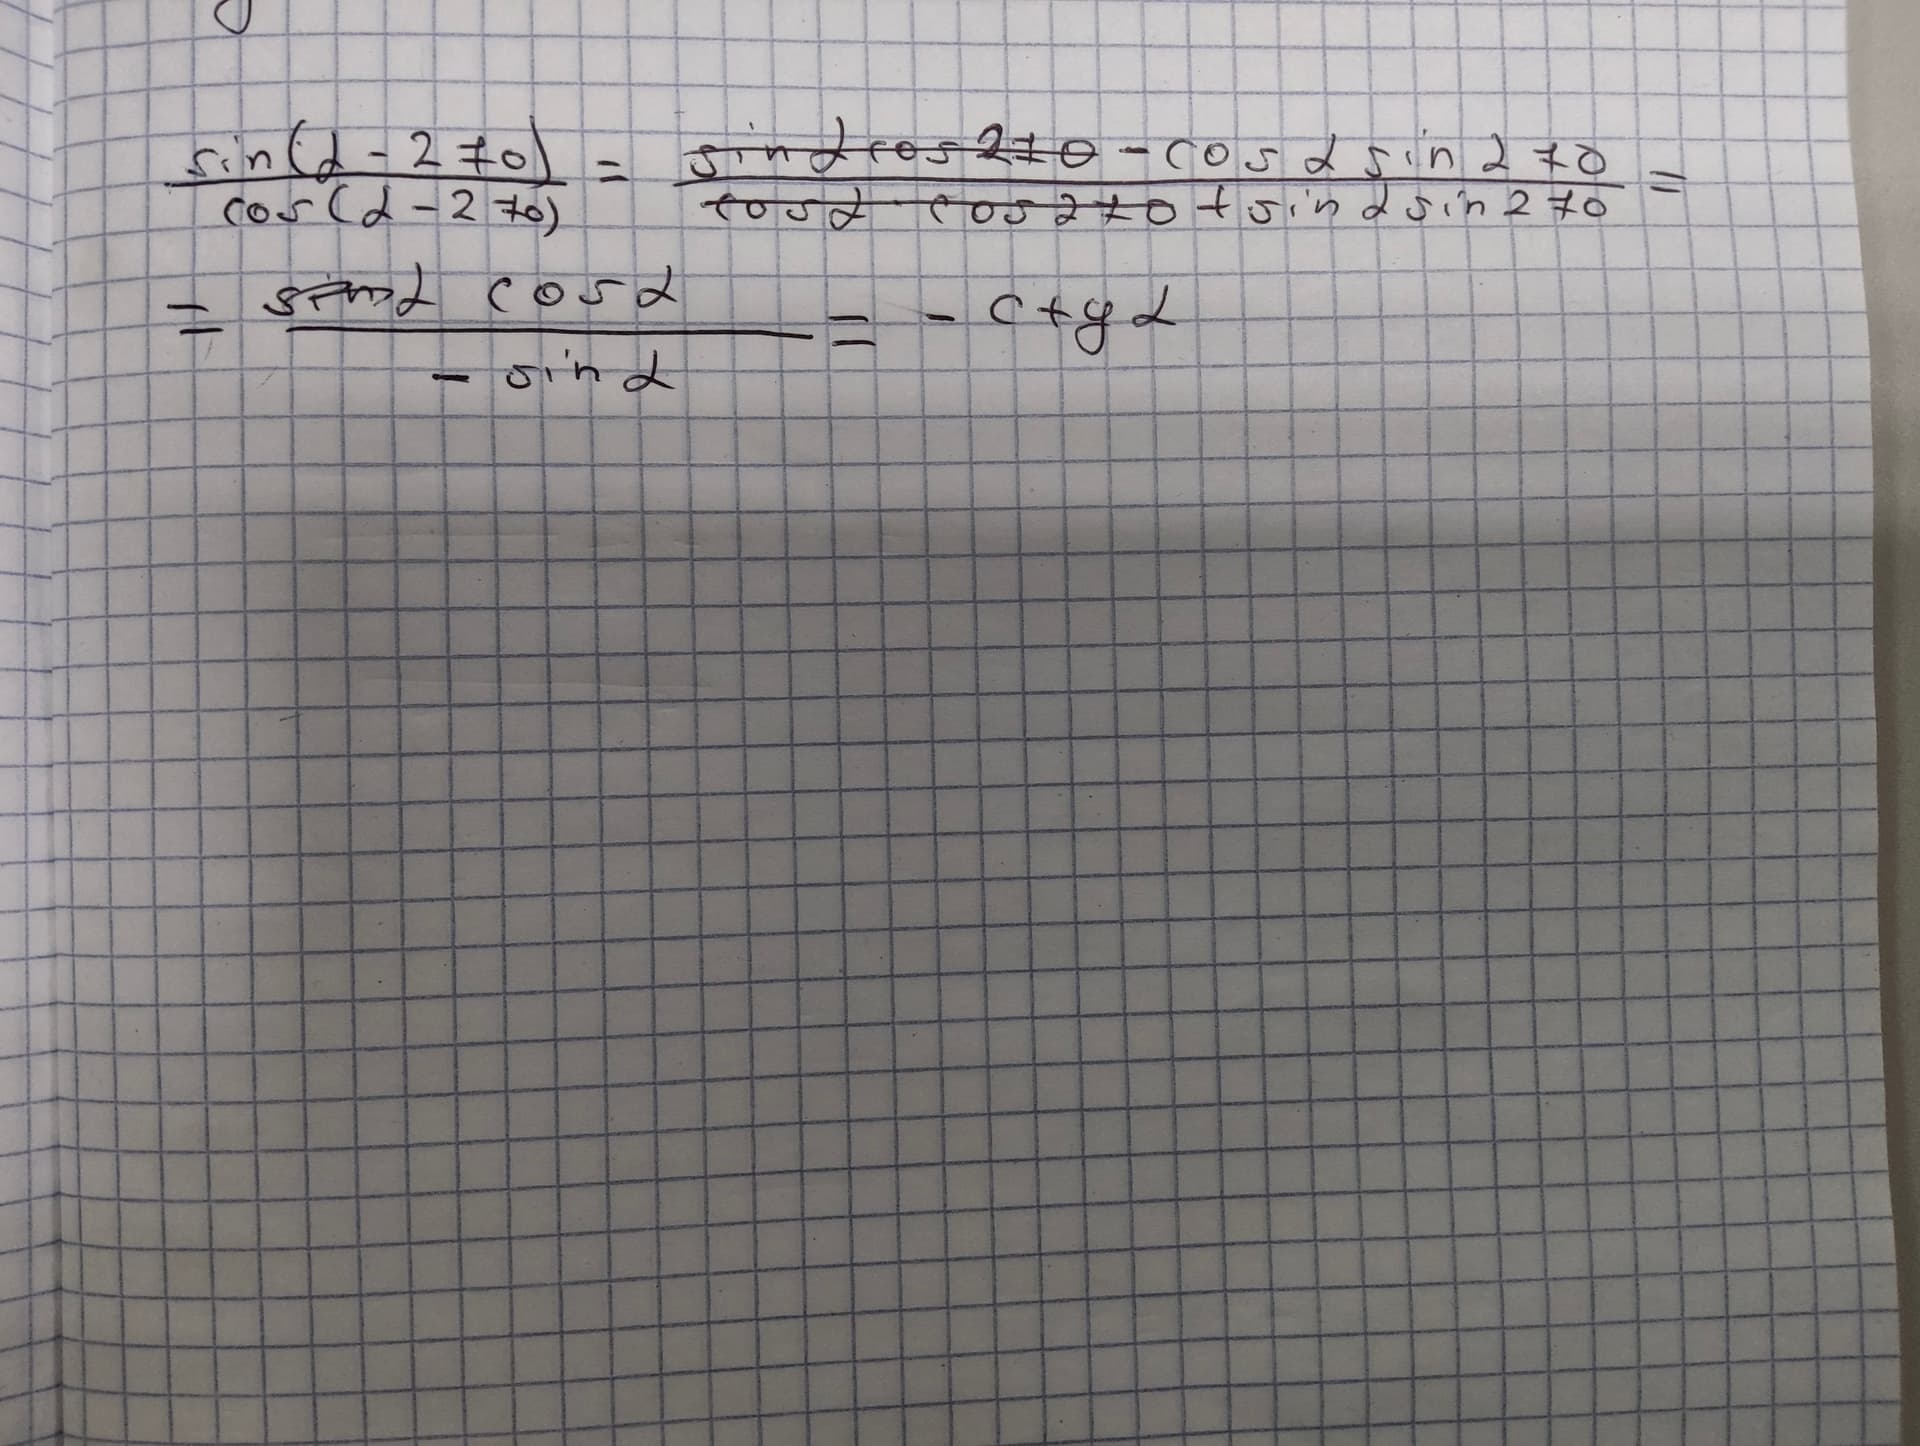 sin(α-270) / cos(α-270) = sinα cos270 - cosα sin270 / cosα cos270 + sinα sin270 =
= sinα cosα / - sinα = - ctgα